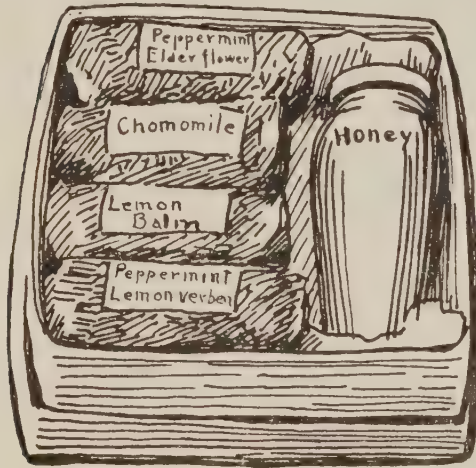 Peppermint
Elder flower
Chomomile
Honey
Lemon
Balm
Peppermint
Lemon verben